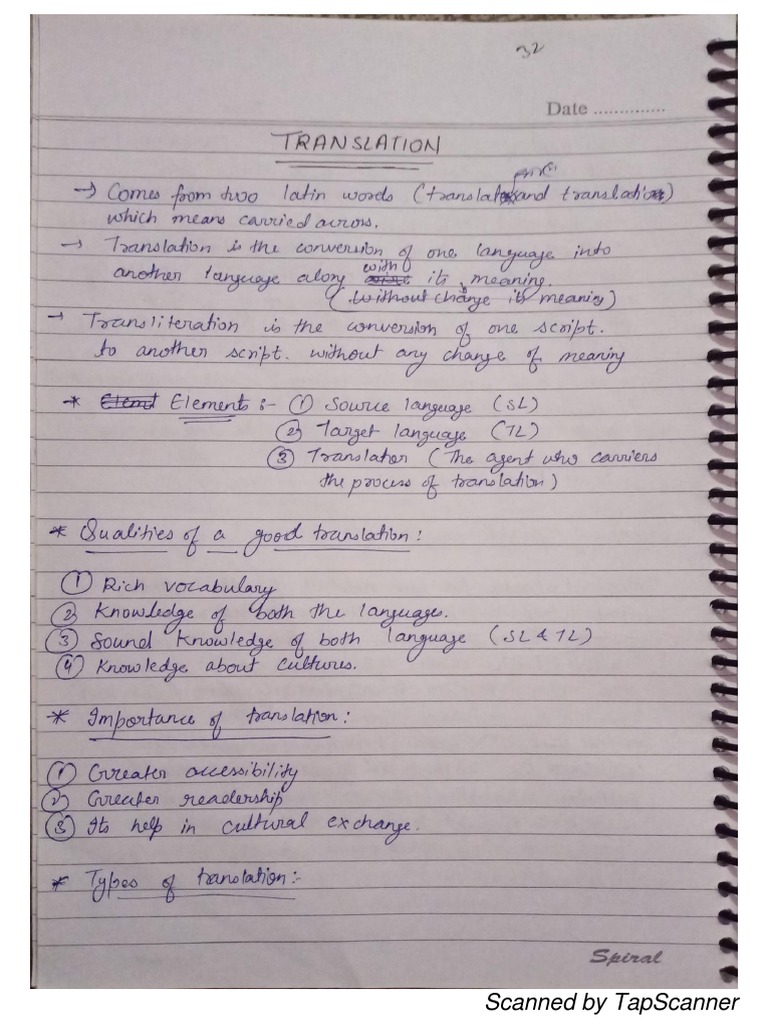 32
Date ..............
TRANSLATION
→ Comes from two latin words (translat and translati)
which means carried across.
→ Translation is the conversion of one language into
another language along with its meaning.
(without change its meaning)
→ Transliteration is the conversion of one script.
to another script. without any change of meaning
* Elements :- ① Source language (SL)
② Target language (TL)
③ Translator (The agent who carriers
the process of translation)
* Qualities of a good translation :
① Rich vocabulary
② Knowledge of both the languages.
③ Sound knowledge of both language (SL & TL)
④ Knowledge about cultures.
* Importance of translation :
① Greater accessibility
② Greater readership
③ Its help in cultural exchange.
* Types of translation :-
Spiral
Scanned by TapScanner